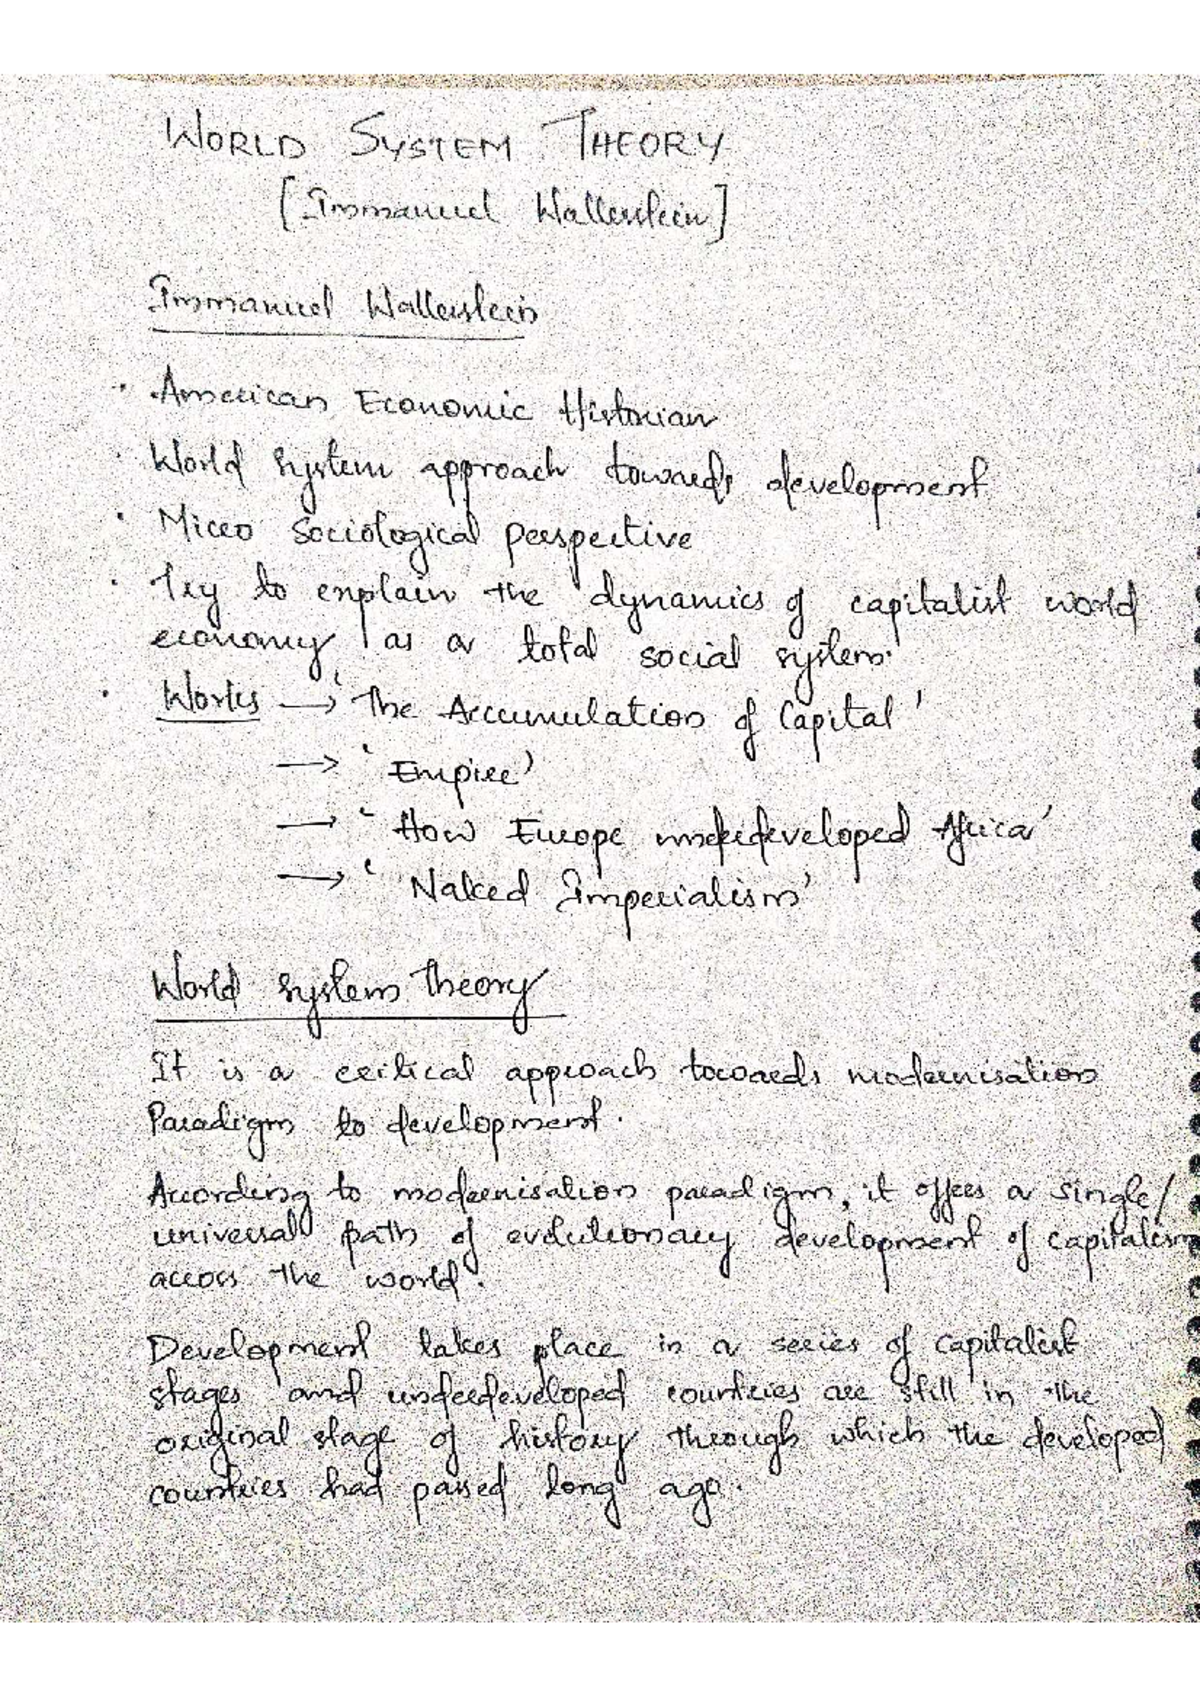 WORLD SYSTEM THEORY
[Immanuel Wallerstein]
Immanuel Wallerstein
· American Economic Historian
· World system approach towards development
· Micro Sociological perspective
· Try to explain the dynamics of capitalist world
economy as a total social system.
· Works → 'The Accumulation of Capital'
→ 'Empire'
→ 'How Europe underdeveloped Africa'
→ 'Naked Imperialism'
World system theory
It is a critical approach towards modernisation
Paradigm to development.
According to modernisation paradigm, it offers a single/
universal path of evolutionary development of capitalism
across the world.
Development takes place in a series of capitalist
stages and underdeveloped countries are still in the
original stage of history through which the developed
countries had passed long ago.